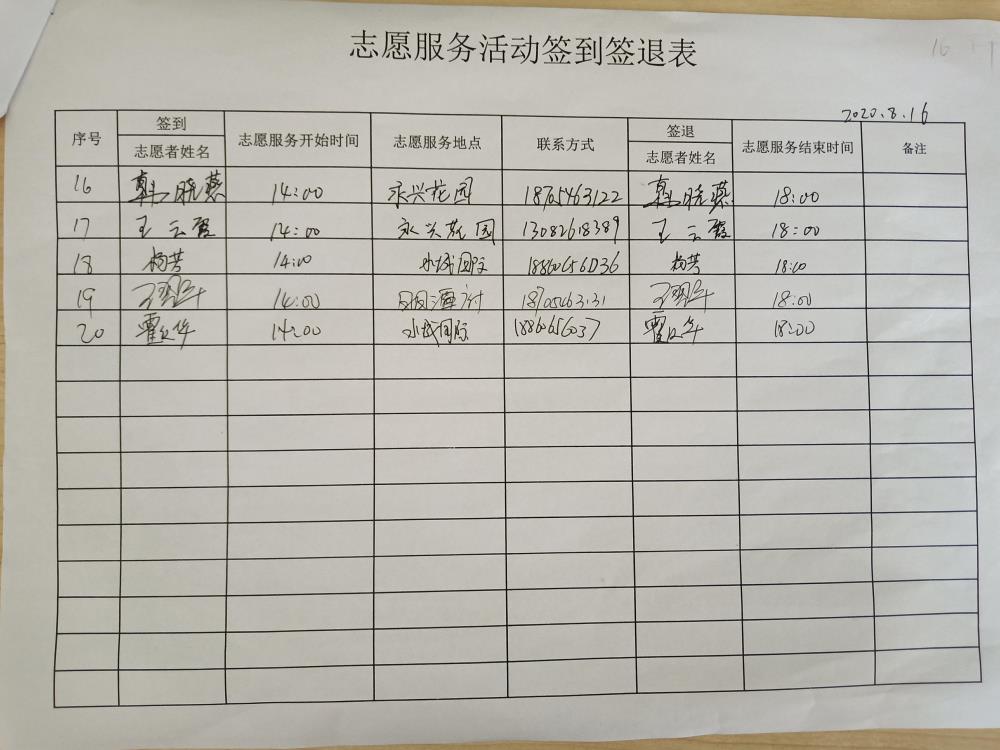 志愿服务活动签到签退表
2020.8.16
序号 签到 志愿者姓名 志愿服务开始时间 志愿服务地点 联系方式 签退 志愿者姓名 志愿服务结束时间 备注
16 韩晓燕 14:00 永兴花园 18705463122 韩晓燕 18:00
17 王云霞 14:00 永兴花园 13082618389 王云霞 18:00
18 杨芳 14:00 水城国际 18860656036 杨芳 18:00
19 14:00 18705463131 18:00
20 14:00 水城国际 18860656037 18:00